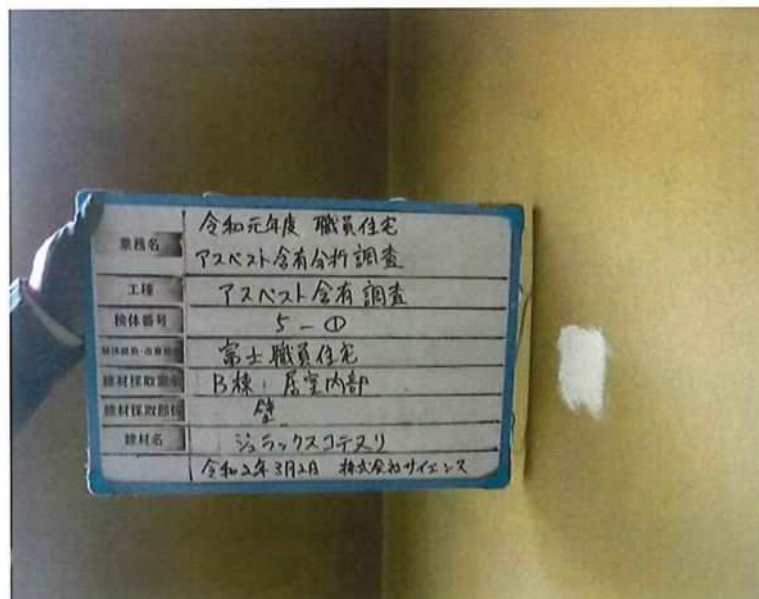 業務名 令和元年度 職員住宅
アスベスト含有分析調査
工種 アスベスト含有調査
検体番号 5-①
富士職員住宅
建材採取 B棟 居室内部
建材採取部位 壁
建材名 ジュラックスコテヌリ
令和2年3月2日 株式会社サイエンス